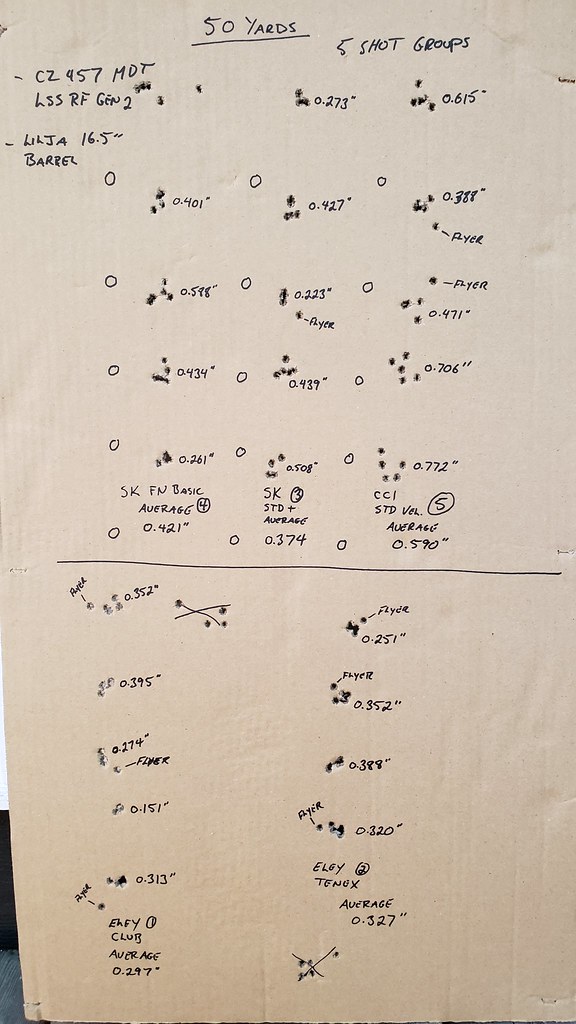 50 YARDS
5 SHOT GROUPS
- CZ 457 MDT
LSS RF GEN 2
- LILJA 16.5"
BARREL
0.273"
0.615"
0.401"
0.427"
0.388"
FLYER
0.598"
0.223"
FLYER
FLYER
0.471"
0.434"
0.439"
0.706"
0.261"
0.508"
0.772"
SK FN BASIC
AVERAGE 4
0.421"
SK 3
STD +
AVERAGE
0.374
CCI
STD VEL. 5
AVERAGE
0.590"
FLYER
0.352"
FLYER
0.251"
0.395"
FLYER
0.352"
0.274"
FLYER
0.388"
0.151"
FLYER
0.320"
0.313"
FLYER
ELEY 1
CLUB
AVERAGE
0.297"
ELEY 2
TENEX
AVERAGE
0.327"